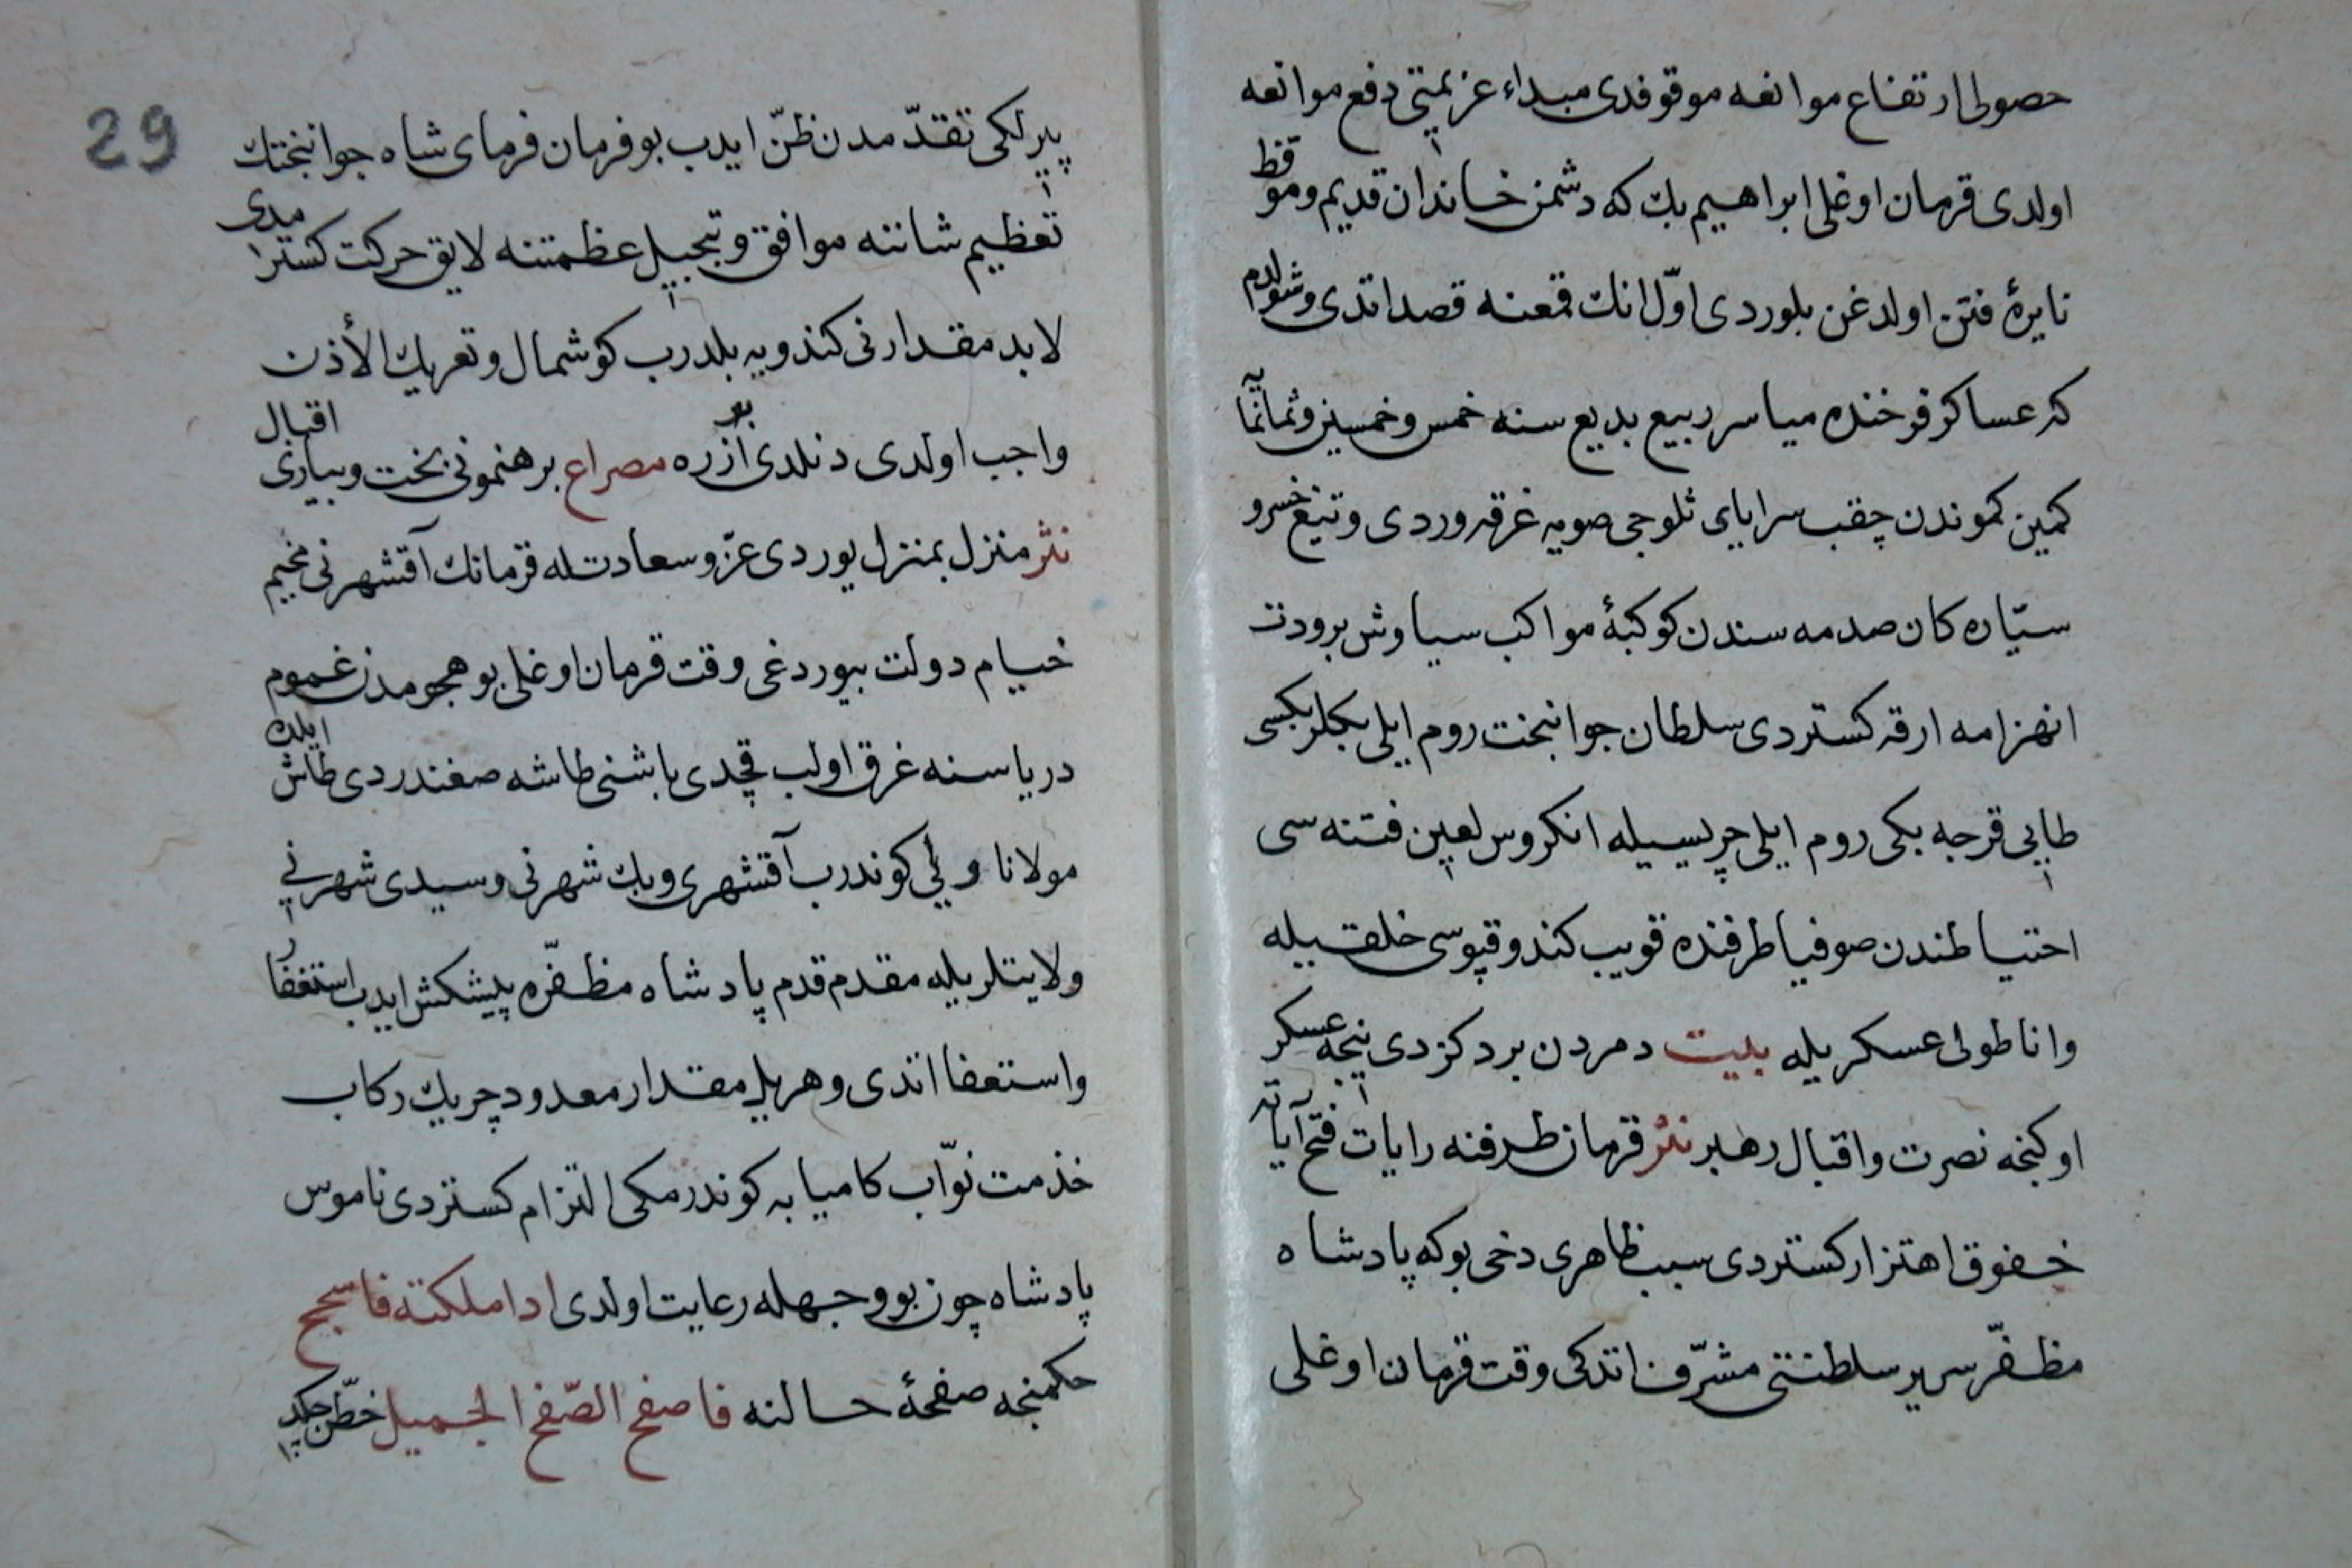 حصولی ارتفاع موانعه موقوفدی مبداء عزیمتی دفع موانعه
اولدی قرمان اوغلی ابراهیم بك که دشمن خاندان قدیم وموقظ
نایرهٔ فتن اولدغن بلوردی اوّل انك قمعنه قصد اتدی وشولدم
که عساکر فرخنده میاسر ربیع بدیع سنه خمس وخمسین وثمانمایه
کمین کموندن چقب سرایای ثلوجی صویه غرقه وردی وتیغ خسرو
سیّاره کان صدمه سندن کوکبهٔ مواکب سیاوش برودت
انهزامه ارقه کستردی سلطان جوانبخت روم ایلی بکلربکسی
طایی قرجه بکی روم ایلی چریسیله انکروس لعین فتنه سی
احتیاطندن صوفیا طرفنده قویب کندو قپوسی خلقیله
واناطولی عسکریله بیت دمردن برد کزدی نیجه عسکر
اوکنجه نصرت واقبال رهبر نثر قرمان طرفنه رایات فتح آیاته
خفوق اهتزار کستردی سبب ظاهری دخی بوکه پادشاه
مظفّر سریر سلطنتی مشرّف اتدکی وقت قرمان اوغلی
29
پیرلکی تقدّمدن ظنّ ایدب بو فرمان فرمای شاه جوانبختك
تعظیم شاننه موافق وتبجیل عظمتنه لایق حرکت کسترمدی
لابد مقدارنی کندویه بلدرب کوشمال وتعریك الأذن
واجب اولدی دنلدی بو ازره مصراع برهنمونی بخت وبیاری اقبال
نثر منزل بمنزل یوردی عزّ وسعادتله قرمانك آقشهرنی مخیم
خیام دولت بیوردغی وقت قرمان اوغلی بو هجومدن غموم
دریاسنه غرق اولب قچدی باشنی طاشه صغندردی طاش ایلده
مولانا ولیّ کوندرب آقشهری وبك شهرنی وسیدی شهرنی
ولایتلریله مقدم قدم پادشاه مظفّره پیشکش ایدب استغفار
واستعفا اتدی وهر یل مقدار معدود چریك رکاب
خذمت نوّاب کامیابه کوندرمکی التزام کستردی ناموس
پادشاه چون بو وجهله رعایت اولدی اذا ملکته فاسجح
حکمنجه صفحهٔ حالنه فاصفح الصّفح الجمیل خطّن چکدی